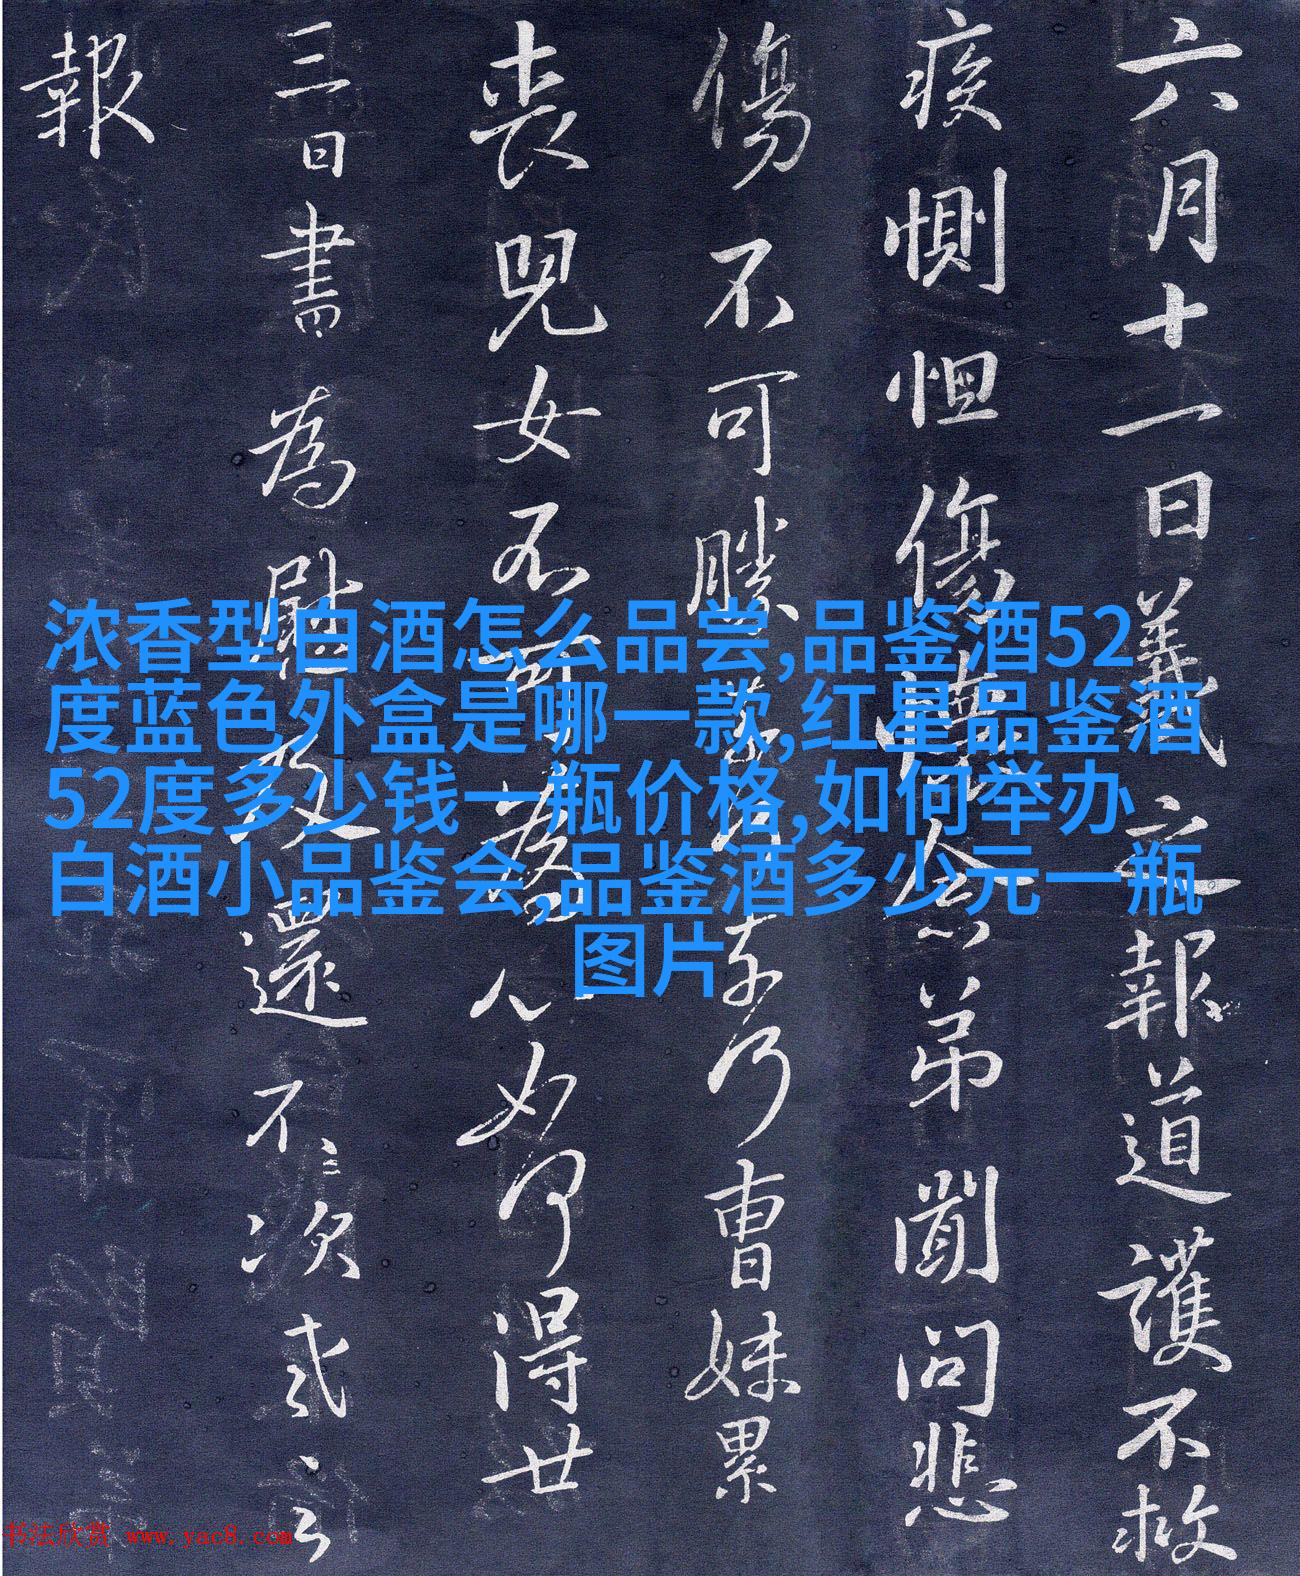 六月十一日羲之報道護不救
疾惻怛傷懷念弟聞問悲
傷不可勝乃曹妹累
喪兒女不可為心如何得廿
三日書為慰及還不次
報
浓香型白酒怎么品尝,品鉴酒52
度蓝色外盒是哪一款,红星品鉴酒
52度多少钱一瓶价格,如何举办
白酒小品鉴会,品鉴酒多少元一瓶
图片
书法欣赏 www.yac8.com